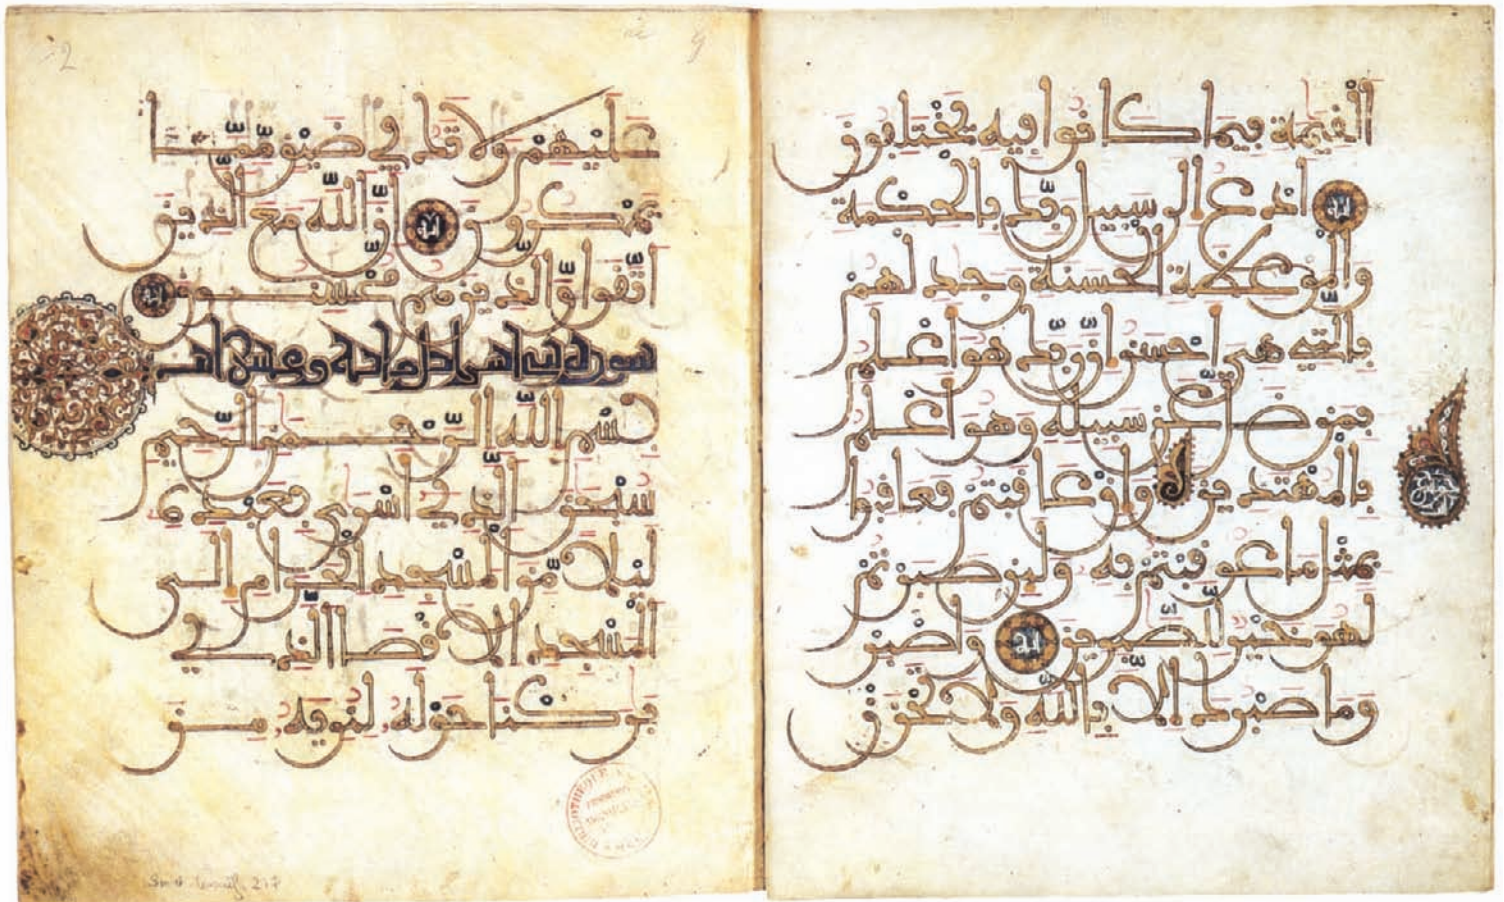 القيمة فيما كانوا فيه يختلفون
ادع الى سبيل ربك بالحكمة
والموعظة الحسنة وجدلهم
بالتي هي احسن ان ربك هو اعلم
بمن ضل عن سبيله وهو اعلم
بالمهتدين وان عاقبتم فعاقبوا
بمثل ما عوقبتم به ولين صبرتم
لهو خير للصبرين واصبر
وما صبرك الا بالله ولا تحزن
2
عليهم ولا تك في ضيق مما
يمكرون ان الله مع الذين
اتقوا والذين هم محسنون
سورة بني اسرايل ماية وعشر ايات
بسم الله الرحمن الرحيم
سبحن الذي اسرى بعبده
ليلا من المسجد الحرام الى
المسجد الاقصا الذي
بركنا حوله لنريه من
BIBLIOTHEQUE
217